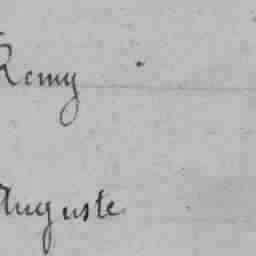 Remy
Auguste